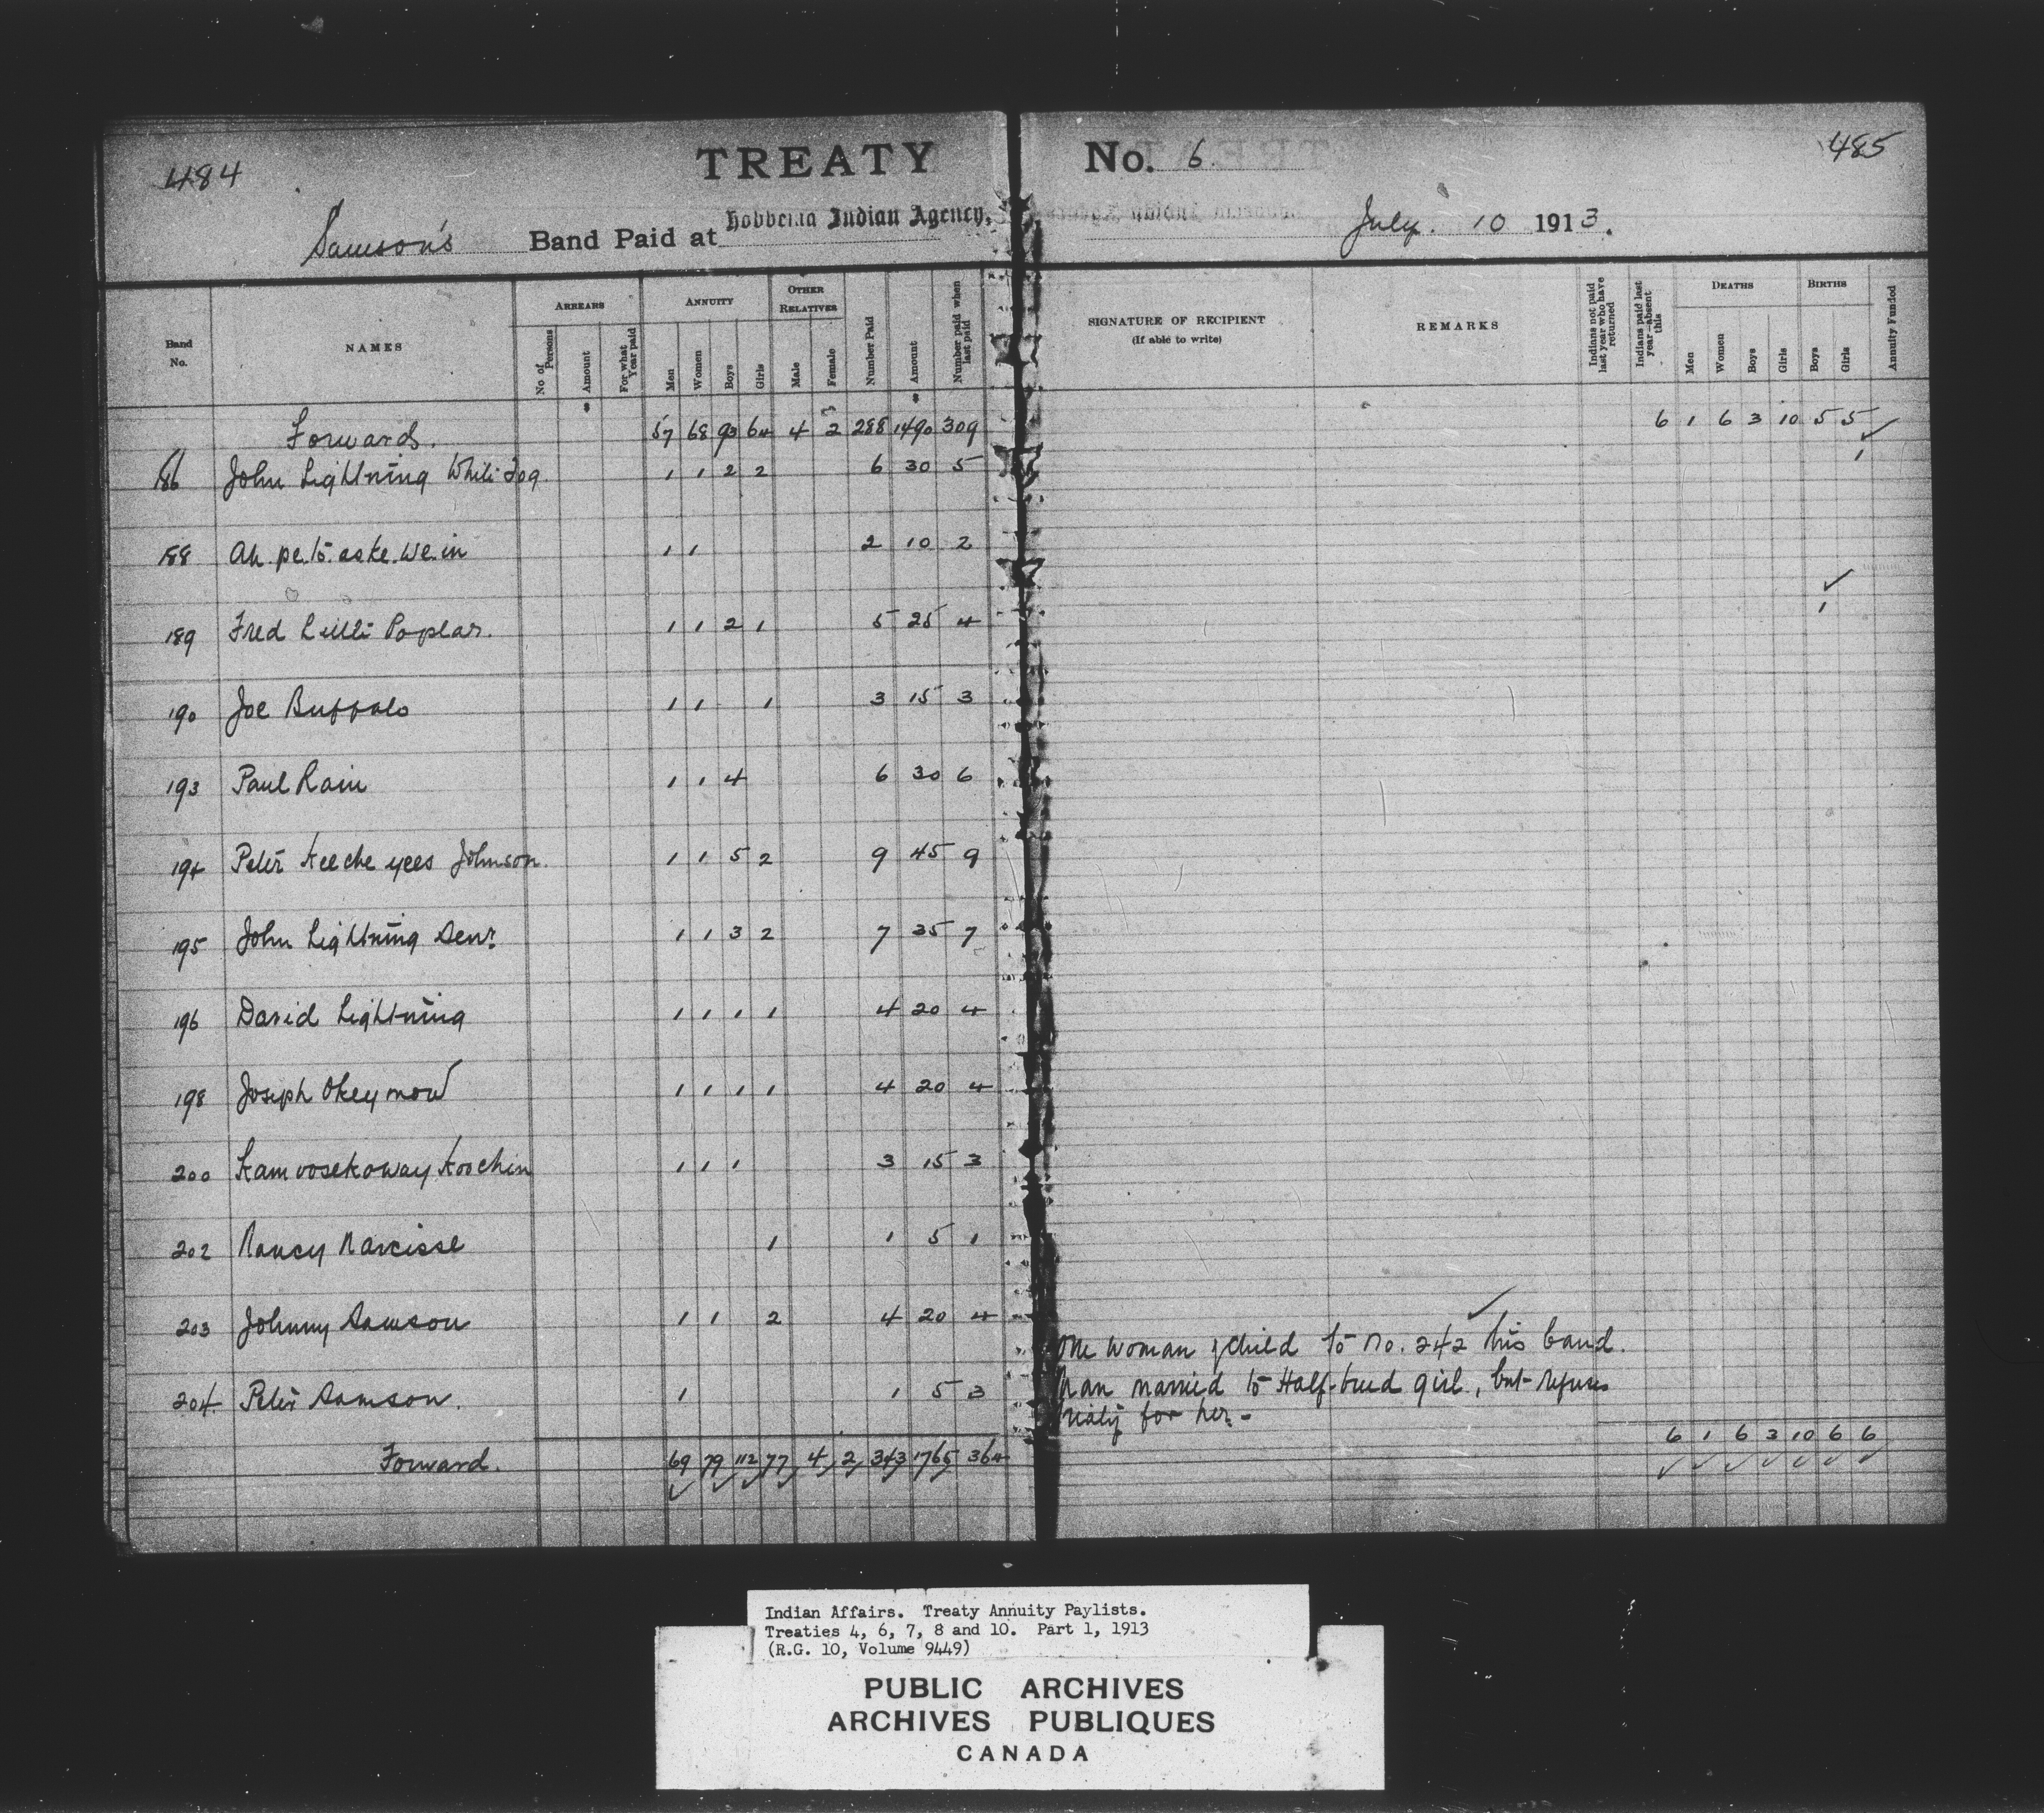 484
TREATY No. 6.
485
Samson's Band Paid at Hobbema Indian Agency, July. 10 1913.
Band No. NAMES ARREARS No. of Persons Amount For what Year paid ANNUITY Men Women Boys Girls OTHER RELATIVES Male Female Number Paid Amount Number paid when last paid SIGNATURE OF RECIPIENT (If able to write) REMARKS Indians not paid last year who have returned Indians paid last year—absent this DEATHS Men Women Boys Girls BIRTHS Boys Girls Annuity Funded
Forwards. 57 68 93 64 4 2 288 1490 309 6 1 6 3 10 5 5
186 John Lightning White Dog. 1 1 2 2 6 30 5 1
188 Ah.pe.to.aske.we.in 1 1 2 10 2
189 Fred Little Poplar. 1 1 2 1 5 25 4 1
190 Joe Buffalo 1 1 1 3 15 3
193 Paul Rain 1 1 4 6 30 6
194 Peter Keeche yees Johnson. 1 1 5 2 9 45 9
195 John Lightning Senr. 1 1 3 2 7 35 7
196 David Lightning 1 1 1 1 4 20 4
198 Joseph Okeymow 1 1 1 1 4 20 4
200 Kamoosekoway Koochin 1 1 1 3 15 3
202 Nancy Narcisse 1 1 5 1
203 Johnny Samson 1 1 2 4 20 4
One woman & child to No. 242 this band.
204. Peter Samson. 1 1 5 3 Man married to Half-breed girl, but refuses
treaty for her.-
Forward. 69 79 112 77 4 2 343 1765 364 6 1 6 3 10 6 6
Indian Affairs. Treaty Annuity Paylists.
Treaties 4, 6, 7, 8 and 10. Part 1, 1913
(R.G. 10, Volume 9449)
PUBLIC ARCHIVES
ARCHIVES PUBLIQUES
CANADA